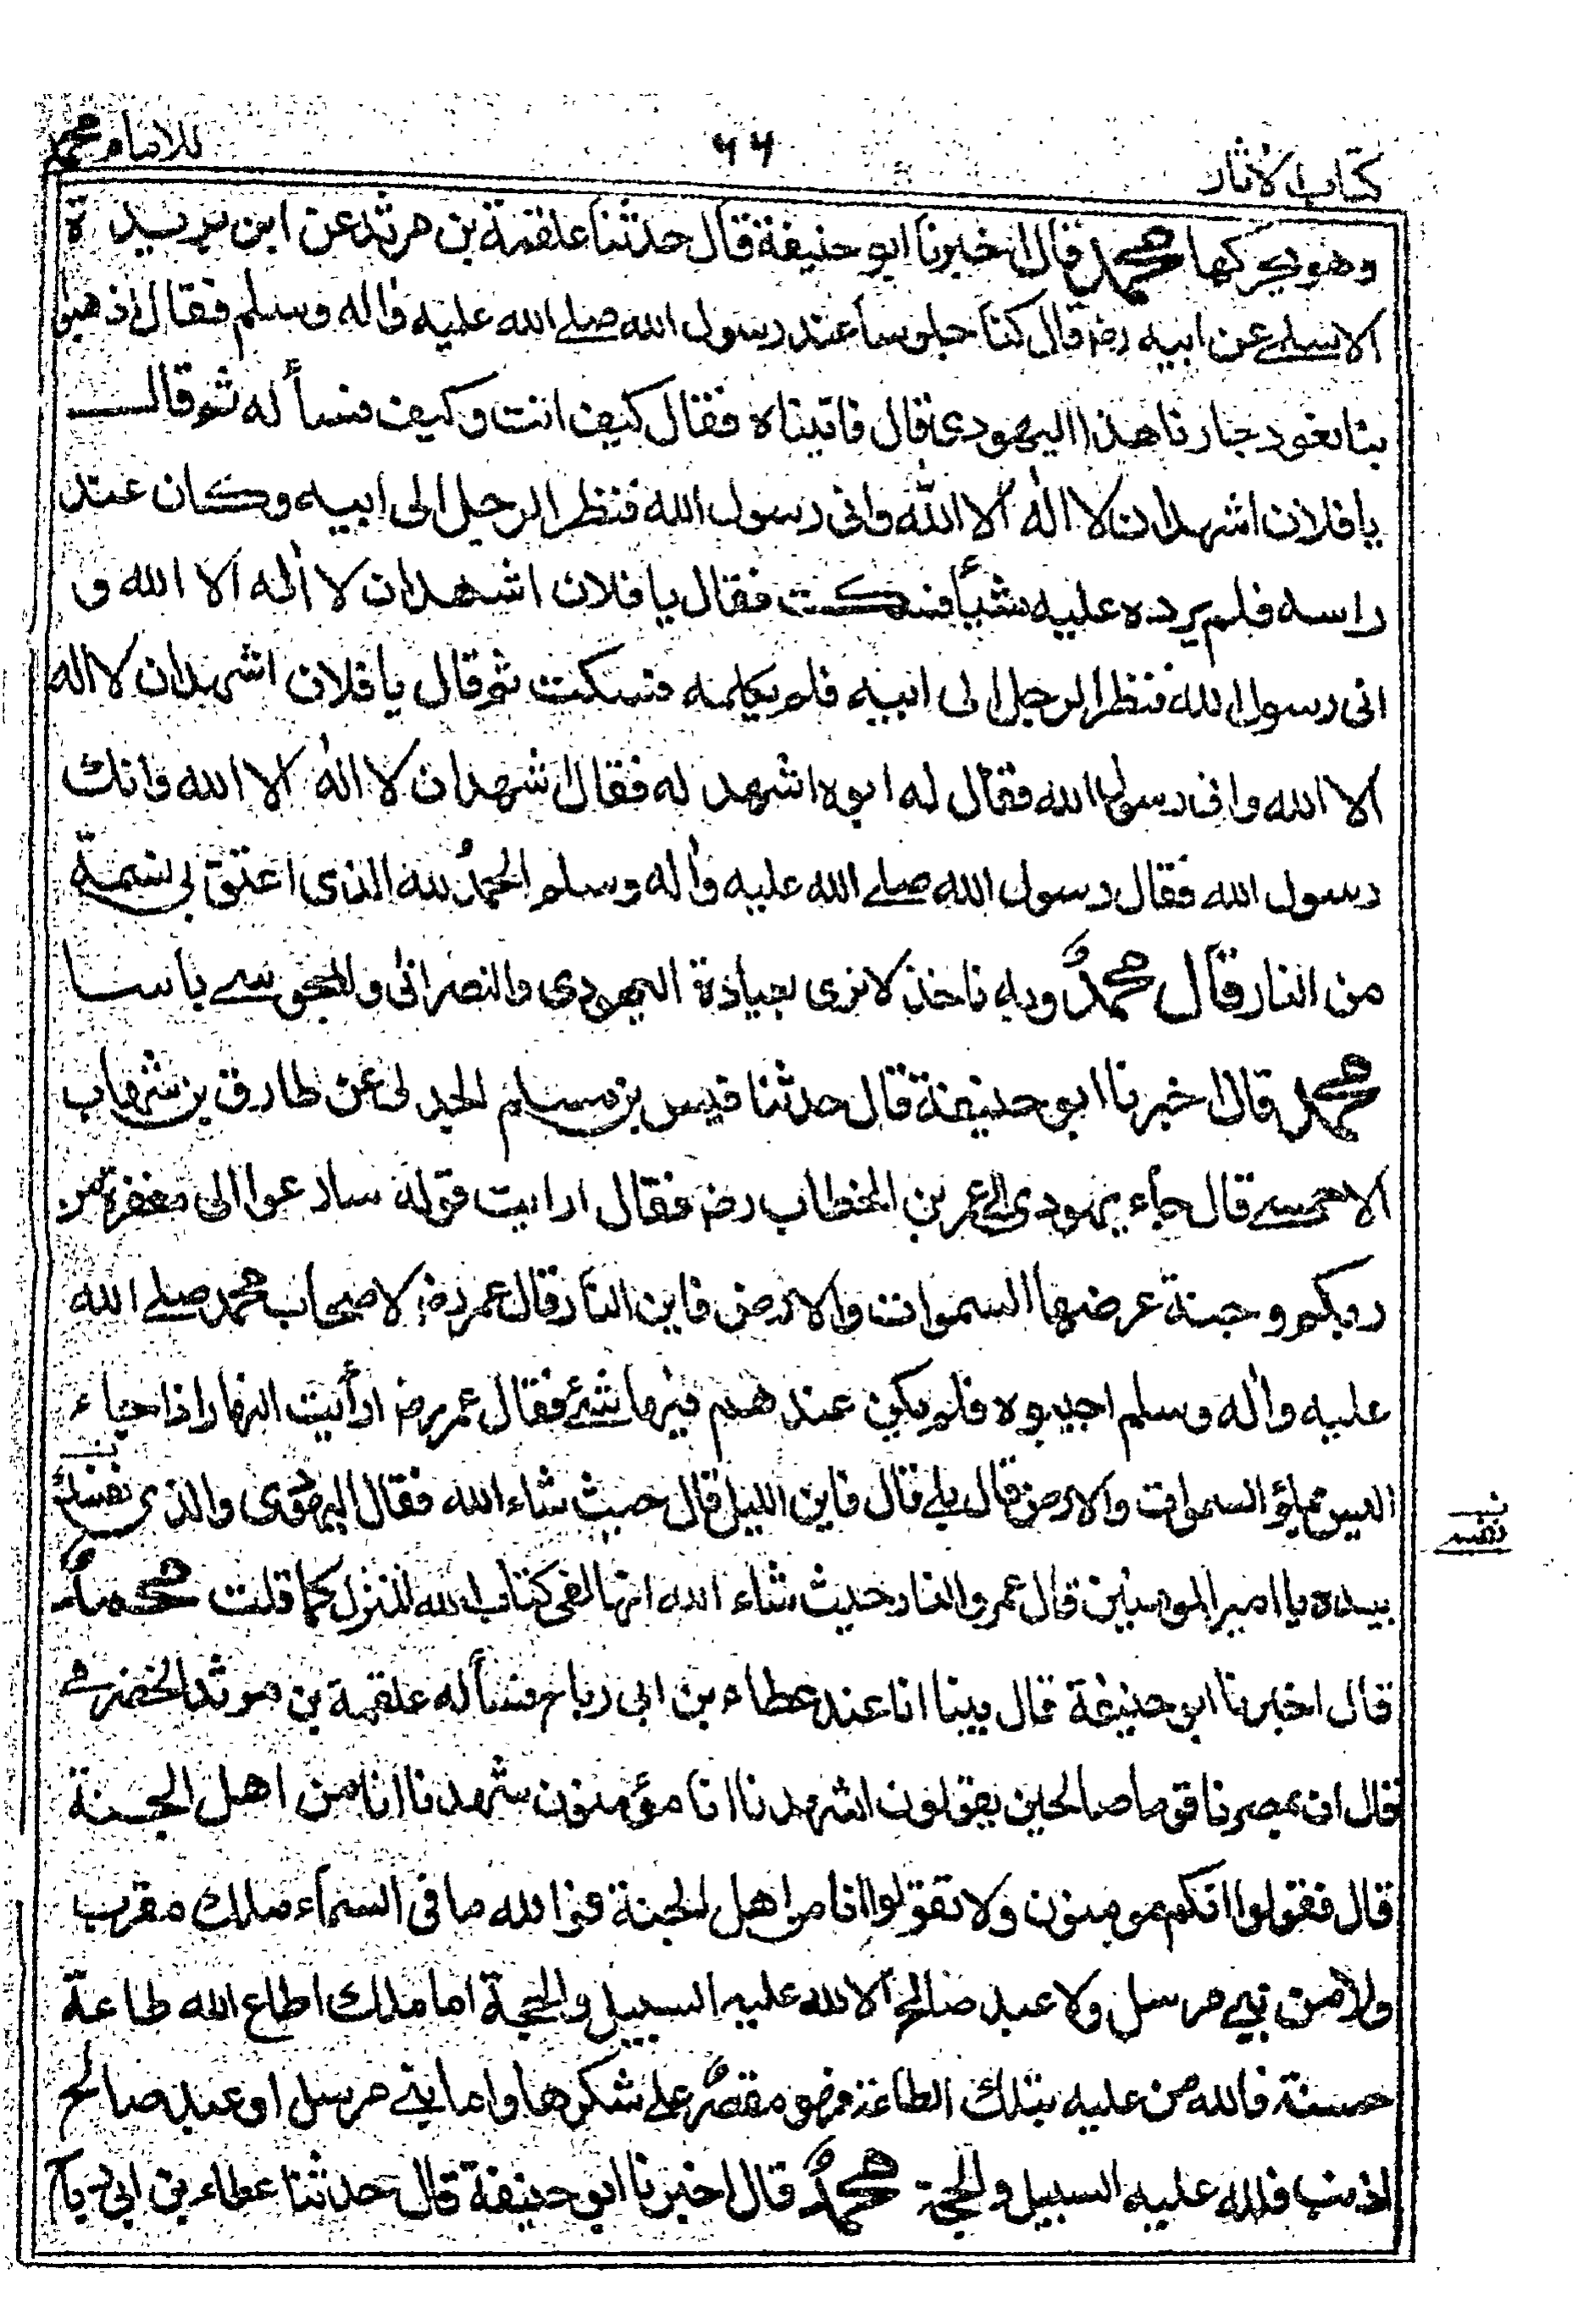 كتاب الاثار
٦٦
للامام محمد
وهو يدركها محمد قال اخبرنا ابو حنيفة قال حدثنا علقمة بن مرثد عن ابن بريدة
الاسلمے عن ابيه رضہ قال كنا جلوسا عند رسول الله صلے الله عليه واٰله وسلم فقال اذهبوا
بنا نعود جارنا هذا اليهودى قال فاتيناه فقال كيف انت وكيف فسأله ثم قال
يا فلان اشهد ان لا اله الا الله وانى رسول الله فنظر الرجل الى ابيه وكان عند
راسه فلم يرده عليه شيأ فسكت فقال يا فلان اشهد ان لا اله الا الله و
انى رسول الله فنظر الرجل الى ابيه فلم يكلمه فسكت ثم قال يا فلان اشهد ان لا اله
الا الله وانى رسول الله فقال له ابوه اشهد له فقال اشهد ان لا اله الا الله وانك
رسول الله فقال رسول الله صلے الله عليه واٰله وسلم الحمد لله الذى اعتق بى نسمة
من النار قال محمد وبه ناخذ لا نرى بعيادة اليهودى والنصرانى والمجوسے باسا
محمد قال اخبرنا ابو حنيفة قال حدثنا قيس بن مسلم الجدلى عن طارق بن شهاب
الاحمسے قال جاء يهودى الے عمر بن الخطاب رضہ فقال ارايت قوله سارعوا الى مغفرة من
ربكم وجنة عرضها السموات والارض فاين النار قال عمر رضہ لاصحاب محمد صلے الله
عليه واٰله وسلم اجيبوه فلم يكن عندهم فيها شئ فقال عمر رضہ ارأيت النهار اذا جاء
اليس يملؤ السموات والارض قال بلے قال فاين الليل قال حيث شاء الله فقال اليهودى والذى نفسك
نفسے
بيده يا امير المومنين قال عمر والنار حيث شاء الله انها لفى كتاب الله المنزل كما قلت محمد
قال اخبرنا ابو حنيفة قال بينا انا عند عطاء بن ابى رباح فسأله علقمة بن مرثد الحضرمے
قال ان بمصرنا قوما صالحين يقولون اشهدنا انا مؤمنون شهدنا انا من اهل الجنة
قال فقولوا انكم مومنون ولا تقولوا انا من اهل الجنة فوالله ما فى السماء ملك مقرب
ولا من نبے مرسل ولا عبد صالح الا لله عليه السبيل والحجة اما ملك اطاع الله طاعة
حسنة فالله من عليه بتلك الطاعة فهو مقصر علے شكرها واما نبے مرسل او عبد صالح
اذنب فلله عليه السبيل والحجة محمد قال اخبرنا ابو حنيفة قال حدثنا عطاء بن ابى رباح